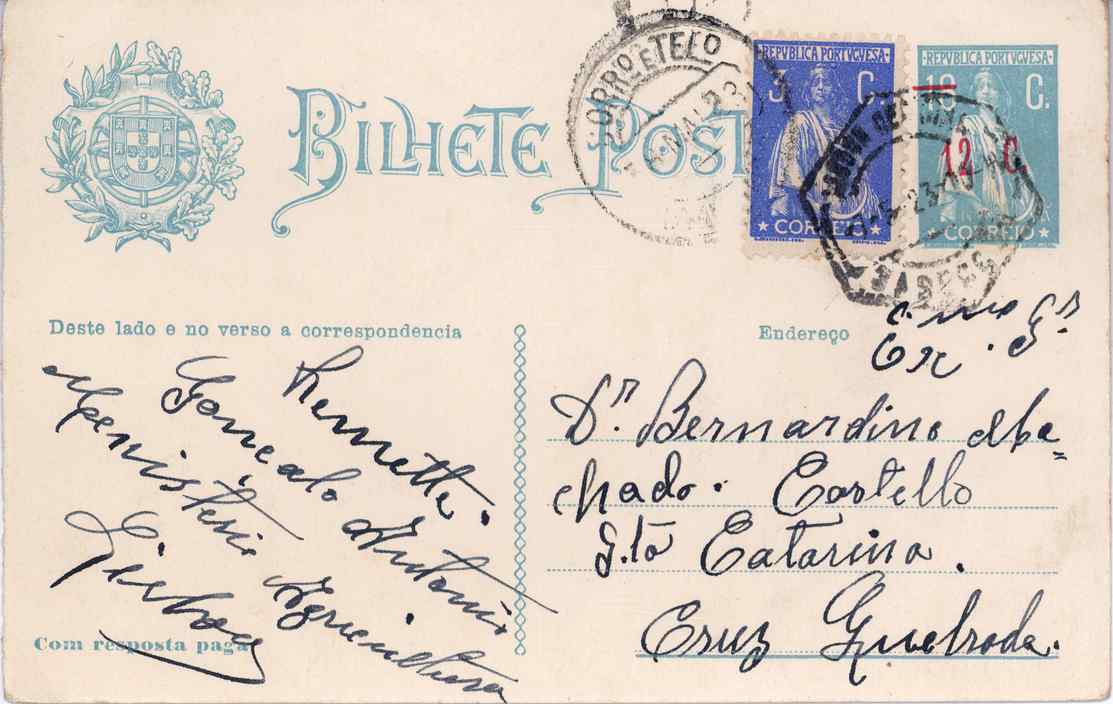 BILHETE POST
CORRO E TELO
REPVBLICA PORTVGVESA
3 C.
CORREIO
REPVBLICA PORTVGVESA
10 C.
12 C.
CORREIO
Deste lado e no verso a correspondencia
Endereço
Exmo Sr
Dr. Bernardino Ma=
chado. Castello
Sta Catarina.
Cruz Quebrada.
Remette.
Gonçalo Antonio
Menisterio Agricultura
Lisboa
Com resposta paga